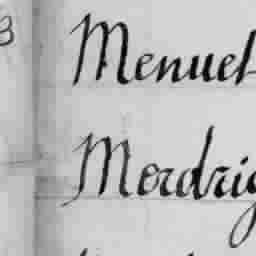 Menuet
Mordrig